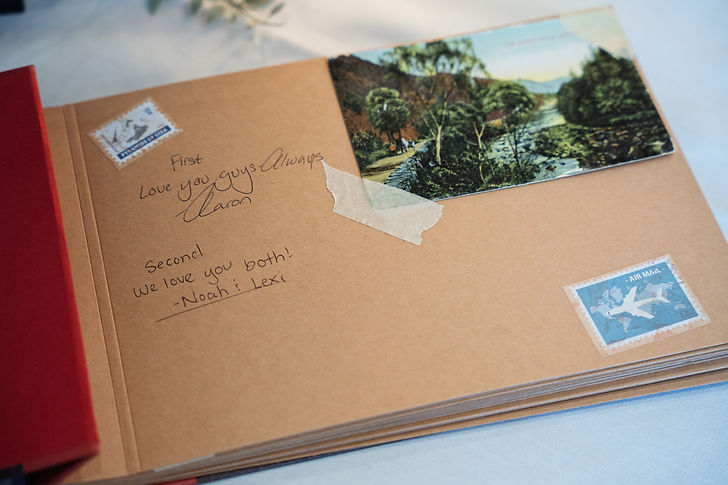 PYRAMIDS OF GIZA
First
Love you guys Always
Aaron
Second
We love you both!
-Noah & Lexi
AIR MAIL